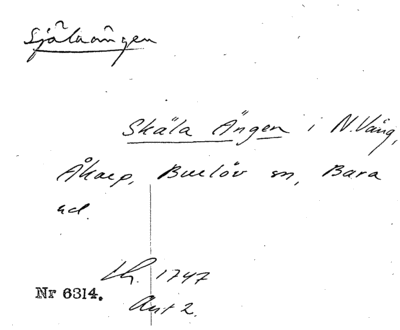 Själaängen
Skäla Ängen i N. Väng,
Åkarp, Burlöv sn, Bara
hd.
Lh. 1747
Nr 6314.
Akt 2.